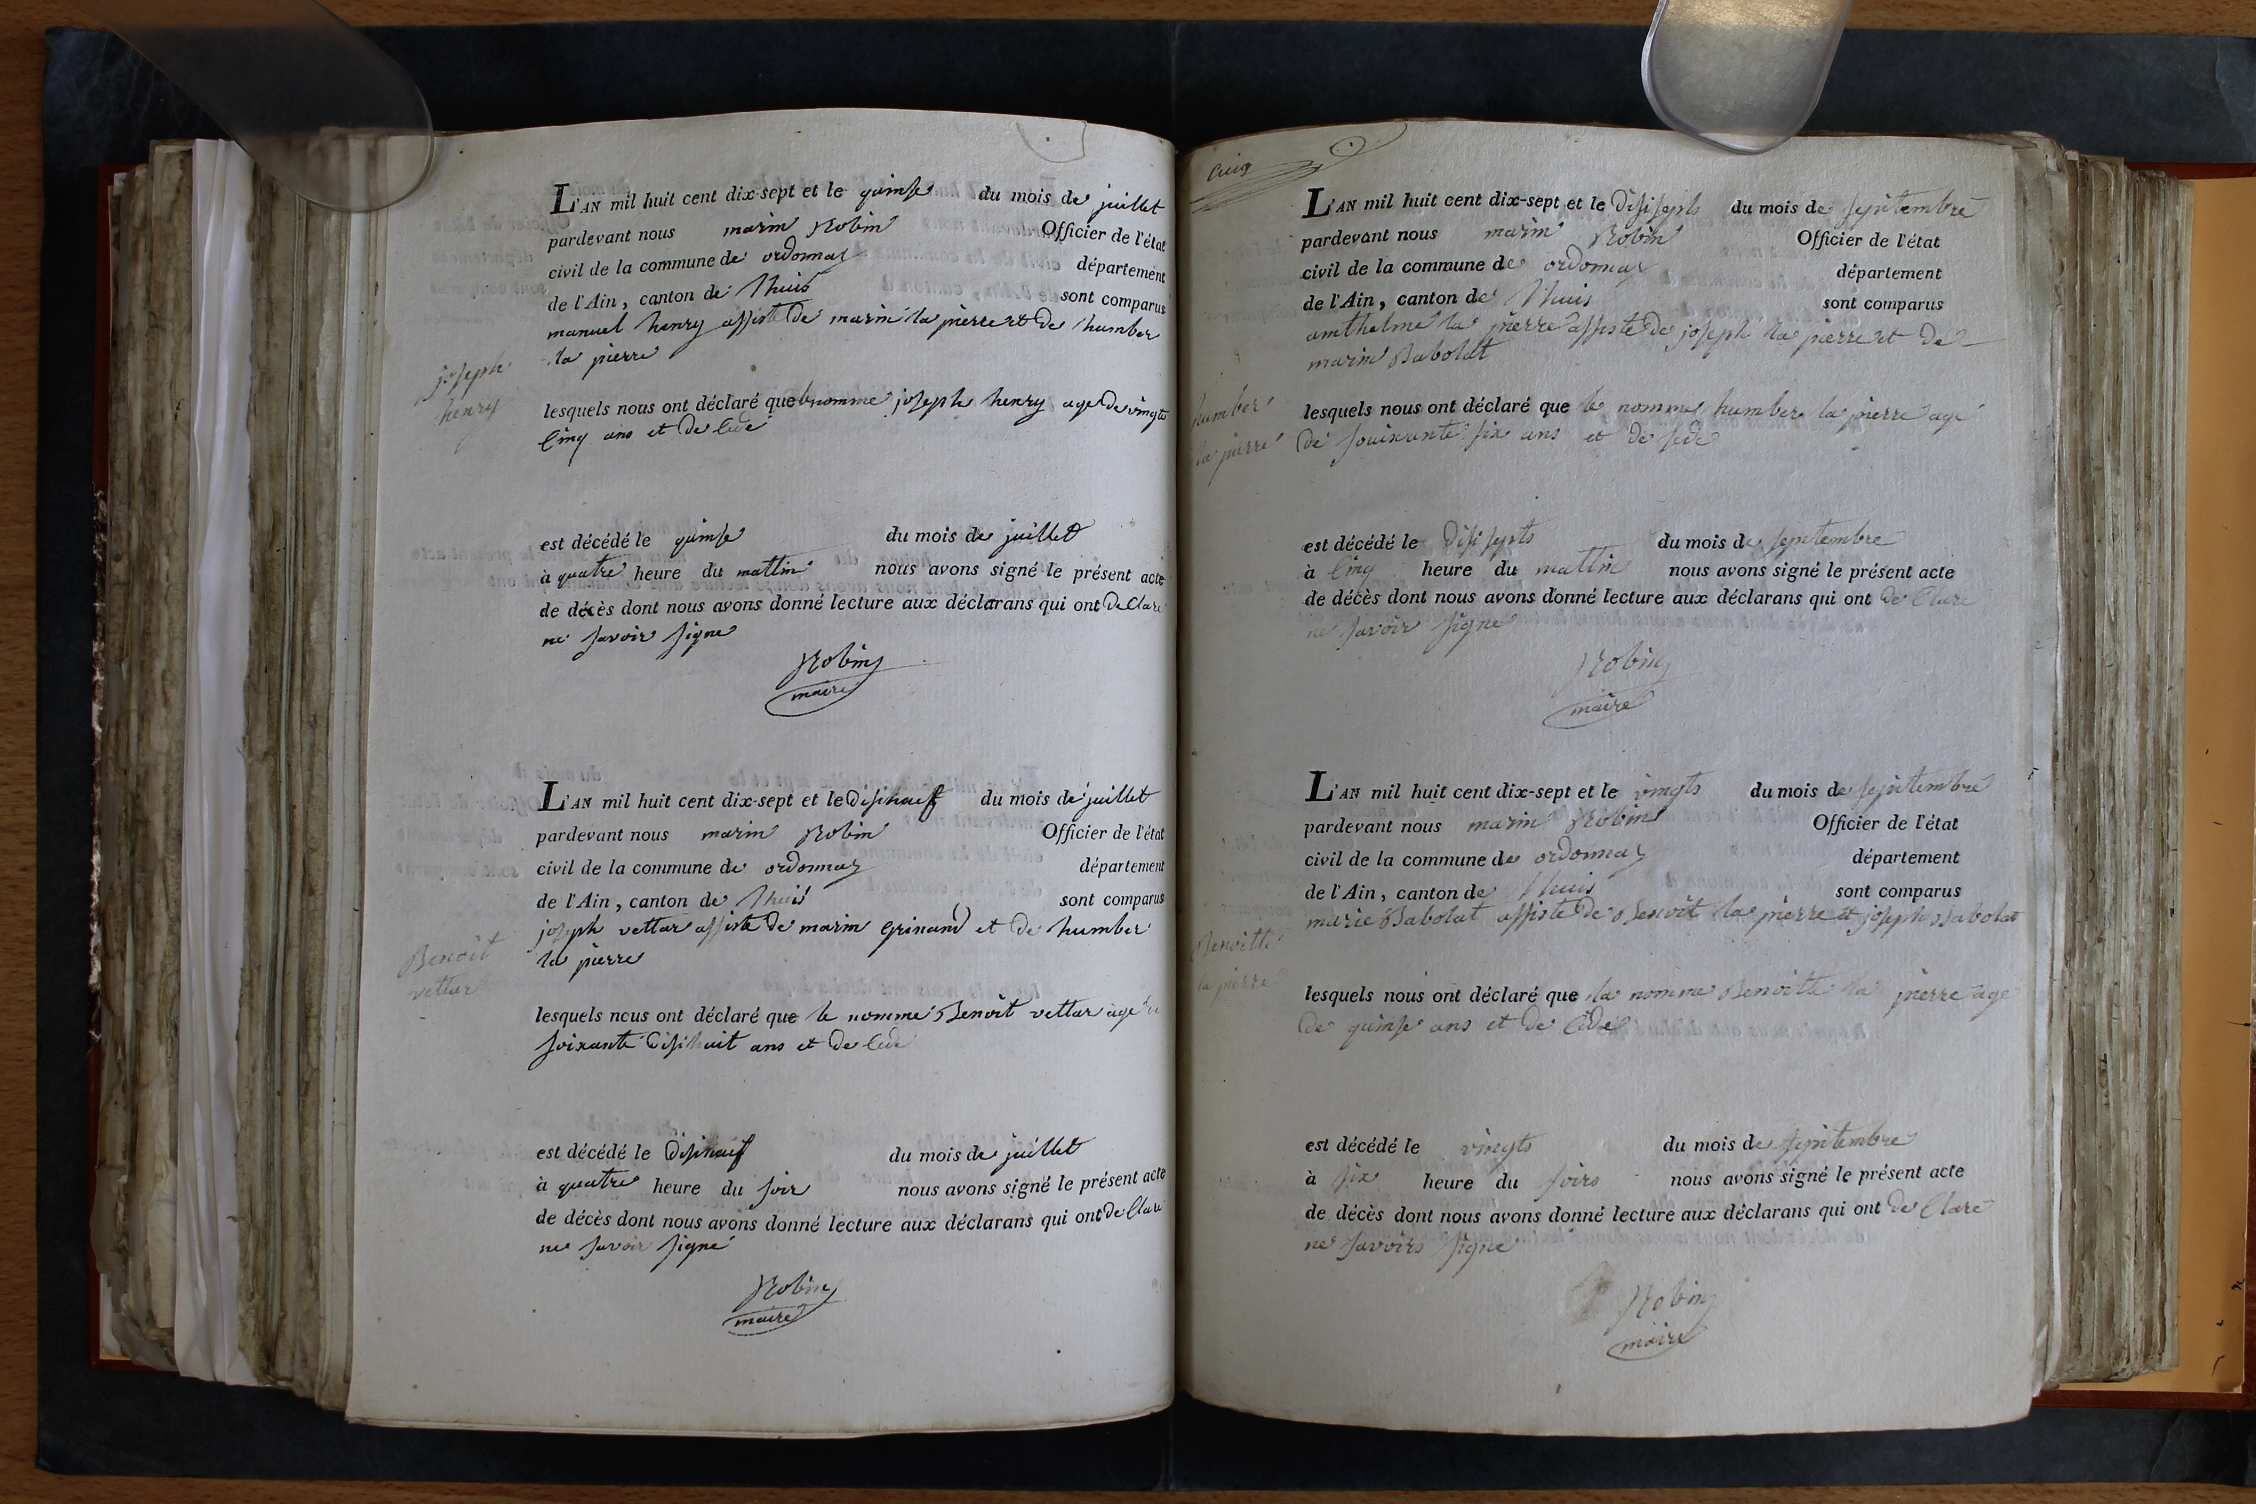 L'AN mil huit cent dix-sept et le quinse du mois de juillet
pardevant nous marin Robin Officier de l'état
civil de la commune de ordonnaz département
de l'Ain, canton de l'huis sont comparus
manuel henry assisté de marin la pierre et de humber
la pierre
joseph
henry
lesquels nous ont déclaré que le nomme joseph henry age de vingts
Cinq ans et de Cede
est décédé le quinse du mois de juillet
à quatre heure du mattin nous avons signé le présent acte
de décès dont nous avons donné lecture aux déclarans qui ont de Clare
ne savoir signe
Robin
maire
L'AN mil huit cent dix-sept et le disineuf du mois de juillet
pardevant nous marin Robin Officier de l'état
civil de la commune de ordonnaz département
de l'Ain, canton de l'huis sont comparus
joseph vettar assiste de marin grinand et de humber
la pierre
Benoit
vettar
lesquels nous ont déclaré que le nomme Benoit vettar age de
soixante disihuit ans et de Cede
est décédé le disineuf du mois de juillet
à quatre heure du soir nous avons signé le présent acte
de décès dont nous avons donné lecture aux déclarans qui ont de Clare
ne savoir signé
Robin
maire
Cinq
L'AN mil huit cent dix-sept et le disisepts du mois de septembre
pardevant nous marin Robin Officier de l'état
civil de la commune de ordonnaz département
de l'Ain, canton de l'huis sont comparus
amthelme la pierre assiste de joseph la pierre et de
marin Babolat
humber
la pierre
lesquels nous ont déclaré que le nomme humber la pierre age
de souixante six ans et de sede
est décédé le disisepts du mois de septembre
à Cinq heure du mattin nous avons signé le présent acte
de décès dont nous avons donné lecture aux déclarans qui ont de Clare
ne savoir signe
Robin
maire
L'AN mil huit cent dix-sept et le vingts du mois de septembre
pardevant nous marin Robin Officier de l'état
civil de la commune de ordonnaz département
de l'Ain, canton de l'huis sont comparus
marie Babolat assiste de Benoit la pierre et joseph Babolat
Benoitte
la pierre
lesquels nous ont déclaré que la nomme Benoitte la pierre age
de quinse ans et de Cede
est décédé le vingts du mois de septembre
à six heure du soirs nous avons signé le présent acte
de décès dont nous avons donné lecture aux déclarans qui ont de Clare
ne savoirs signe
Robin
maire